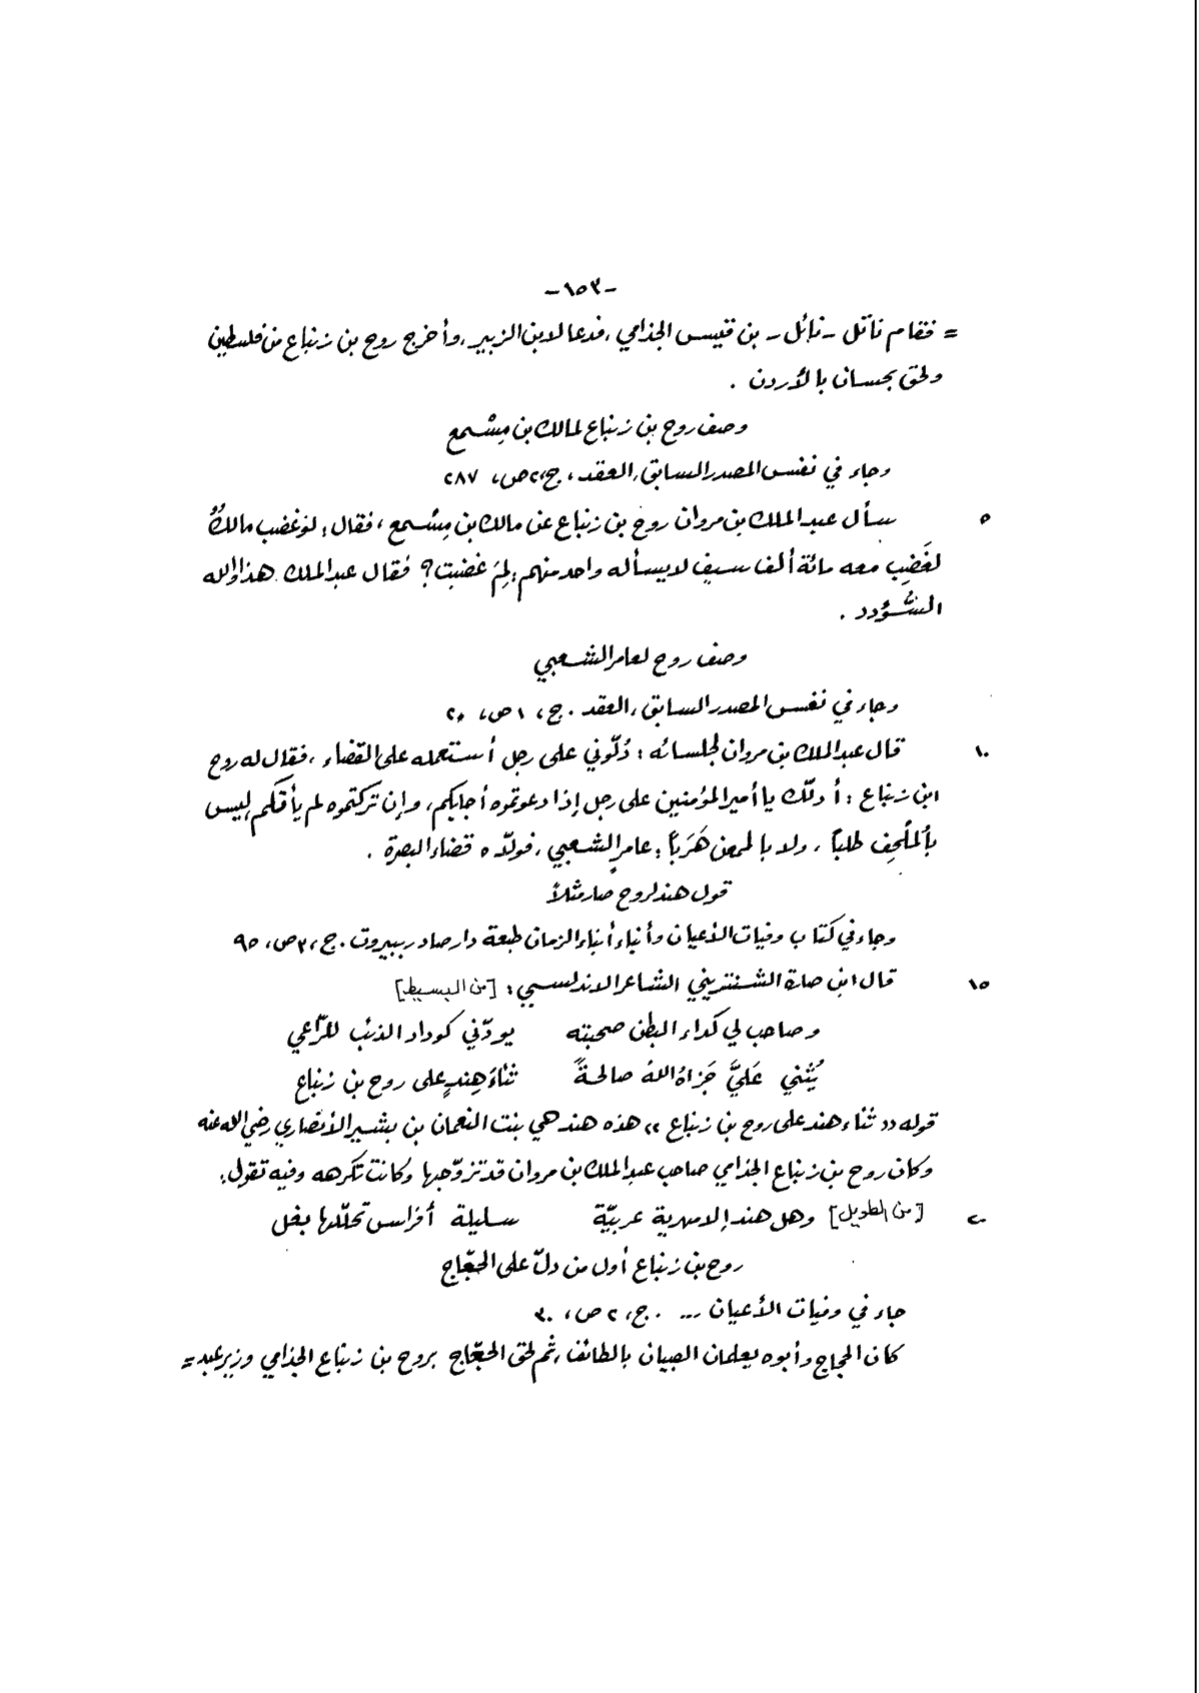 -١٥٣-
= فقام ناتل -نائل- بن قيس الجذامي، فدعا لابن الزبير، وأخرج روح بن زنباع من فلسطين
ولحق بحسان بالأردن .
وصف روح بن زنباع لمالك بن مِسْمع
وجاء في نفس المصدر السابق، العقد، ج،٢ص، ٢٨٧
٥ سأل عبد الملك بن مروان روح بن زنباع عن مالك بن مِسْمع، فقال: لو غضب مالكٌ
لغَضِب معه مائة ألف سيف لا يسأله واحد منهم: لِمَ غضبت؟ فقال عبد الملك هذا والله
السُّؤدد .
وصف روح لعامر الشعبي
وجاء في نفس المصدر السابق، العقد . ج، ١ ص، ٢٠
١٠ قال عبد الملك بن مروان لجلسائه: دُلّوني على رجل أستعمله على القضاء، فقال له روح
ابن زنباع: أدلّك يا أمير المؤمنين على رجل إذا دعوتموه أجابكم، وإن تركتموه لم يأتكم، ليس
بالمُلْحِف طلباً، ولا بالممعن هَرَباً: عامرٍ الشعبي، فولّاه قضاء البصرة .
قول هند لروح صار مثلاً
وجاء في كتاب وفيات الأعيان وأنباء أبناء الزمان طبعة دار صادر ببيروت . ج،٣ص، ٩٥
١٥ قال ابن صارة الشنتريني الشاعر الاندلسي: [من البسيط]
وصاحب لي كداء البطن صحبته يودّني كوداد الذئب للرّاعي
يُثني عَليَّ جَزاهُ اللهُ صالحةً ثناءَ هِندٍ على روح بن زنباع
قوله «ثناء هند على روح بن زنباع» هذه هند هي بنت النعمان بن بشير الأنصاري رضي الله عنه
وكان روح بن زنباع الجذامي صاحب عبد الملك بن مروان قد تزوّجها وكانت تكرهه وفيه تقول:
٢٠ [من الطويل] وهل هند إلا مهرة عربيّة سليلة أفراس تحلّلها بغل
روح بن زنباع أول من دلّ على الحجّاج
جاء في وفيات الأعيان ... . ج، ٢ ص، ٣٠
كان الحجاج وأبوه يعلمان الصبيان بالطائف، ثم لحق الحجّاج بروح بن زنباع الجذامي وزير عبد =